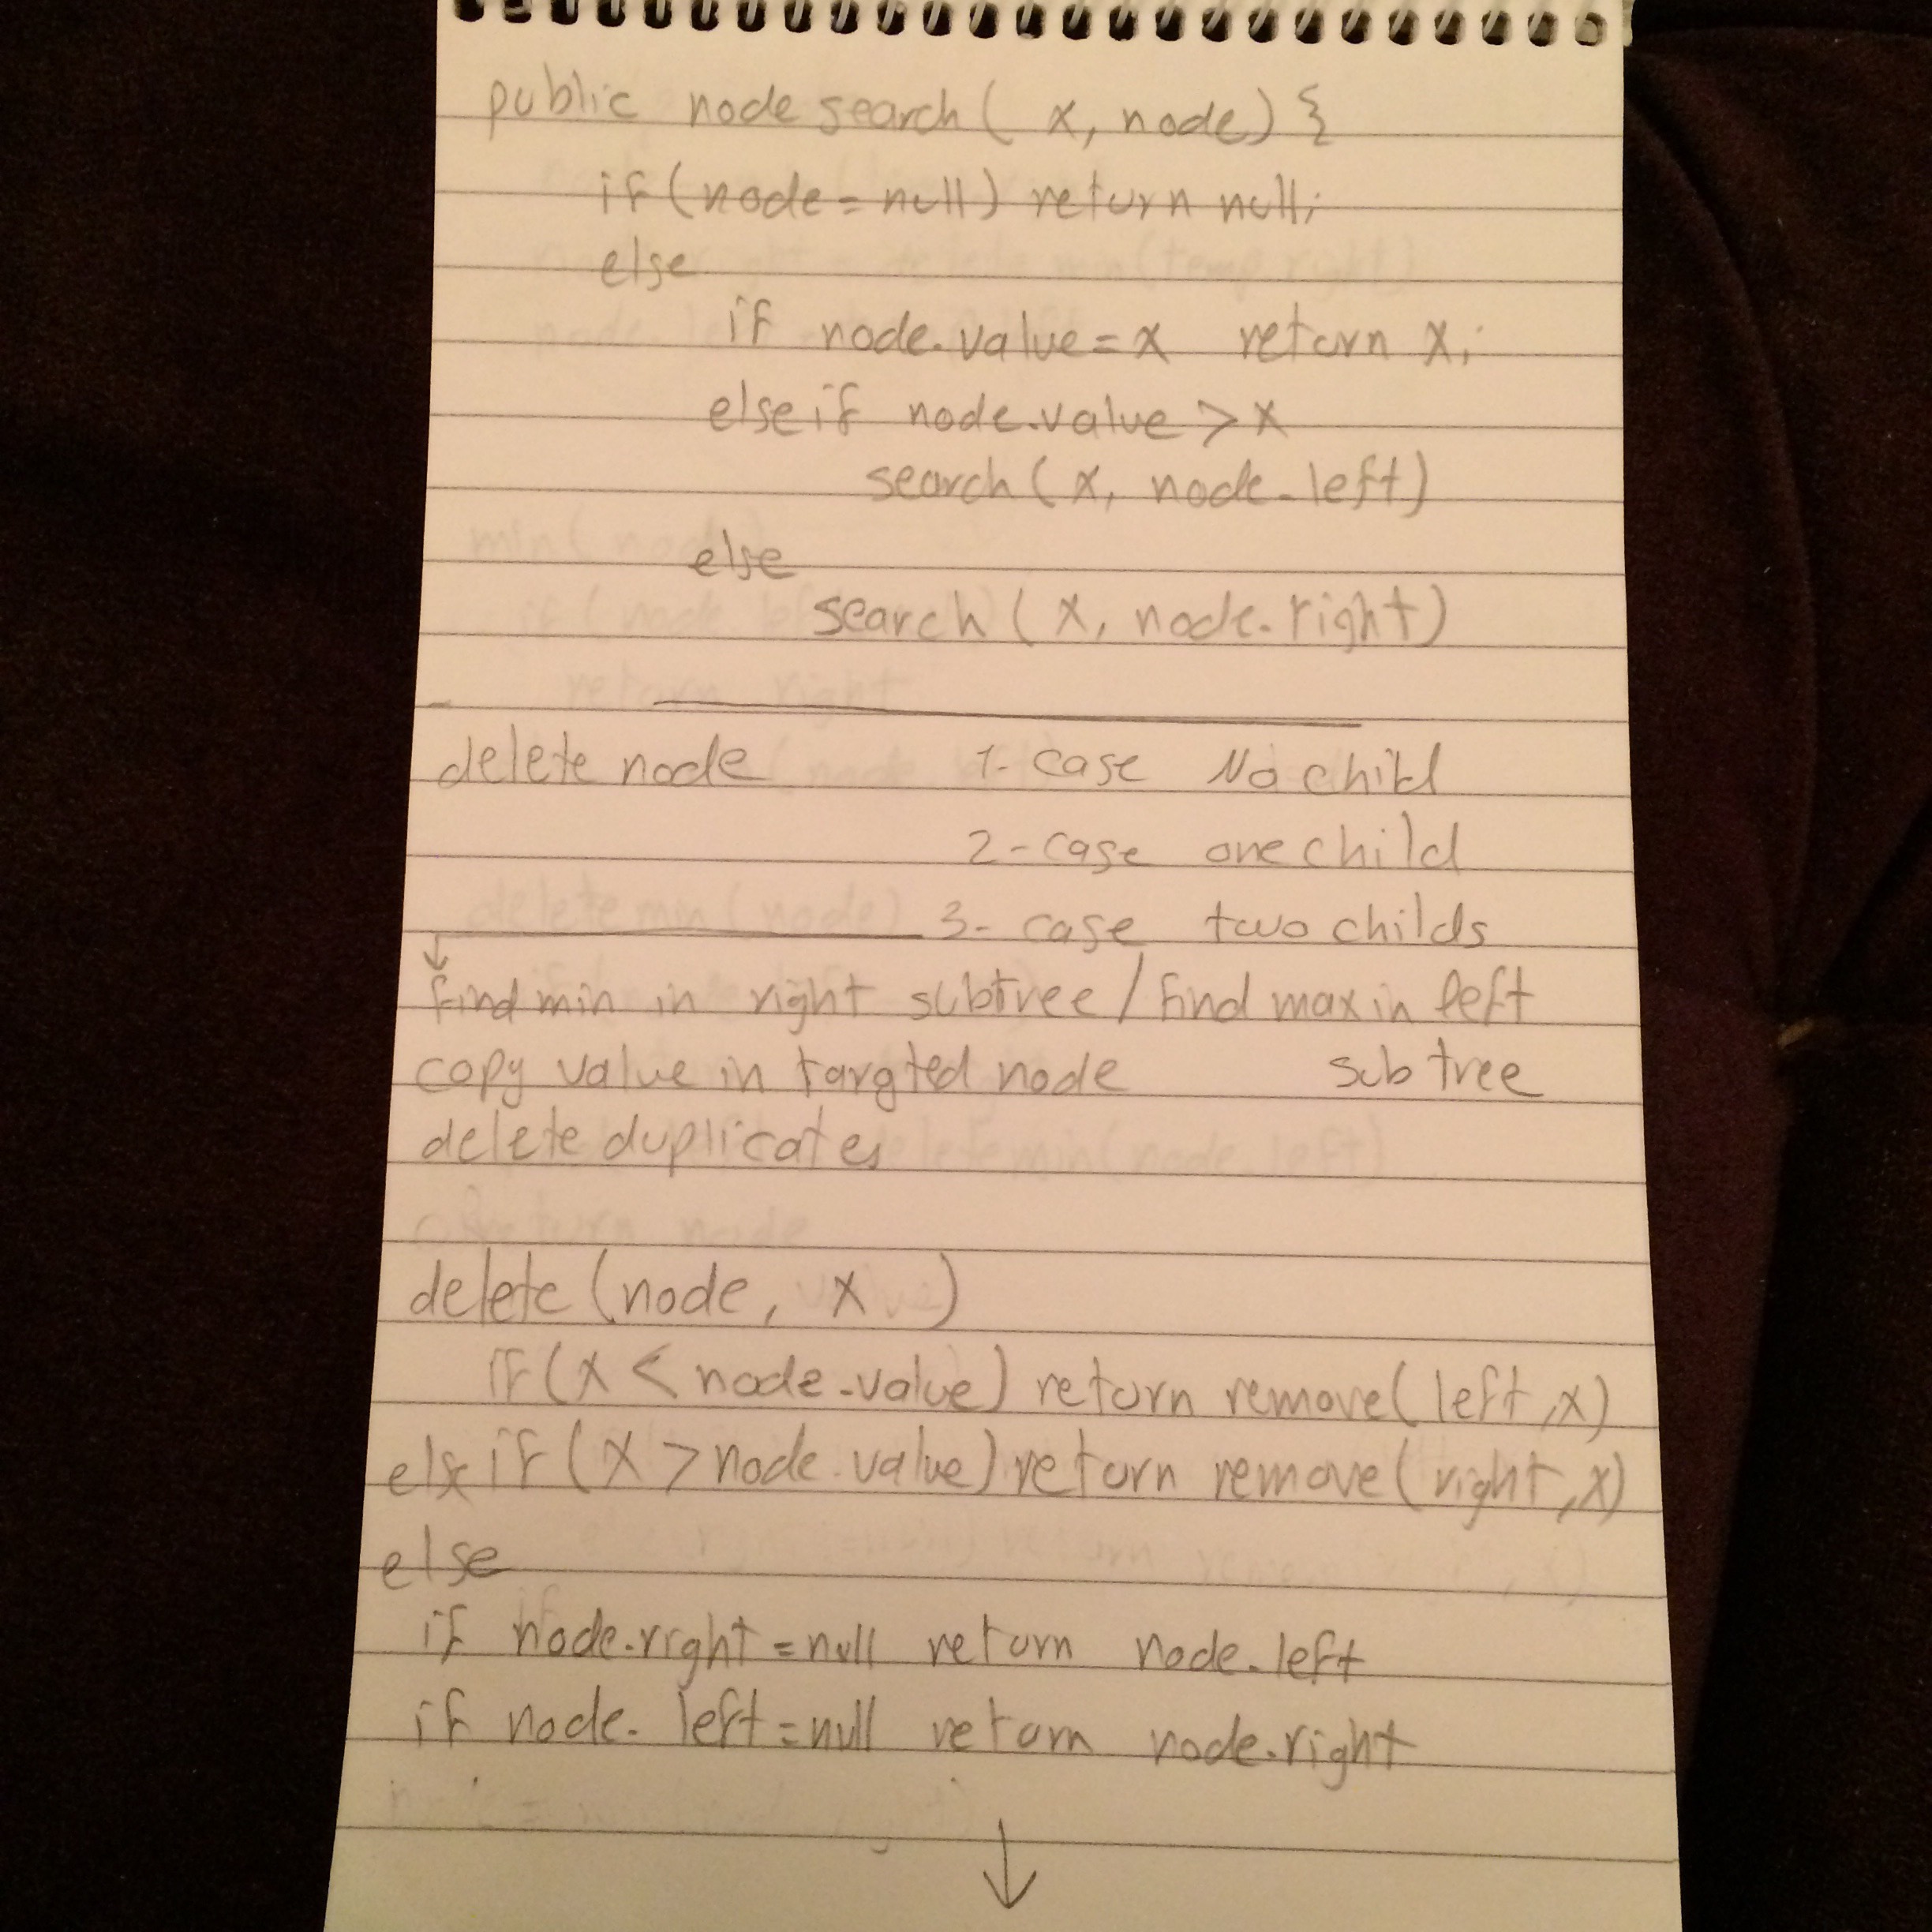 public node search( x, node) {
if(node = null) return null;
else
if node.value = x return x;
else if node.value > x
search( x, node.left)
else
search( x, node.right)
delete node 1- case No child
2- case one child
3- case two childs
find min in right subtree / find max in left
copy value in targted node subtree
delete duplicates
delete (node, x )
if(x < node.value) return remove( left ,x)
else if (x > node.value) return remove( right ,x)
else
if node.right = null return node.left
if node. left = null return node.right